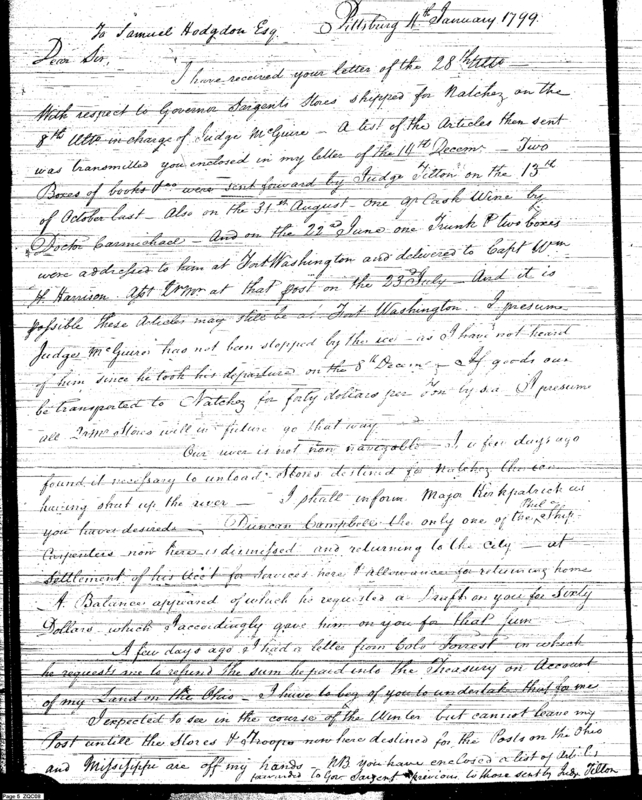 To Samuel Hodgdon Esq. Pittsburg 4th January 1799.
Dear Sir,
I have received your letter of the 28th Ulto
With respect to Governor Sargents Stores shipped for Natchez on the
8th Ulto in charge of Judge McGuire – A list of the Articles then sent
was transmitted you enclosed in my letter of the 14th Decem. – Two
Boxes of books &co were sent forward by Judge Tilton on the 13th
of October last – Also on the 31st August – one qr Cask Wine by
Doctor Carmichael – And on the 22nd June one Trunk & two boxes
were addressed to him at Fort Washington and delivered to Capt Wm
H. Harrison at that post on the 23d July – And it is
possible these Articles may still be at Fort Washington. I presume
Judge McGuire has not been stopped by the ice – as I have not heard
of him since he took his departure on the 8th Decemr – If goods can
be transported to Natchez for forty dollars per Ton by sea I presume
all Stores will in future go that way –
Our river is not now navigable – I a few days ago
found it necessary to unload Stores destined for Natchez the ice
having shut up the river – I shall inform Major Kirkpatrick as
you have desired – Duncan Campbell the only one of the Phila Ship
Carpenters now here is dismissed and returning to the city – at
Settlement of his Acct for Services here & allowance for returning home
A Balance appeared of which he requested a Draft on you for Sixty
Dollars which I accordingly gave him on you for that Sum
A few days ago I had a letter from Colo Forrest in which
he requests me to refund the sum he paid into the Treasury on Account
of my Land on the Ohio – I have to beg of you to undertake that for me
I expected to see in the course of the Winter but cannot leave my
Post untill the Stores & Troops now here destined for the Posts on the Ohio
and Missisippi are off my hands – NB you have enclosed a list of Articls
forwarded to Gov. Sargent previous to those sent by Judge Tilton
Page 5 ZQC08